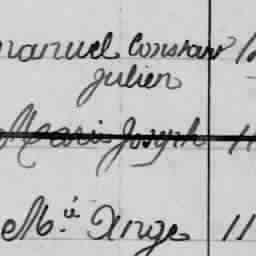 manuel Constant
Julien
Marie Joseph 11
M.ie Ange 11